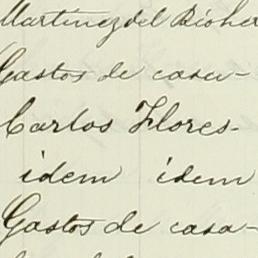 Martinez del Rio her
Gastos de casa-
Carlos Flores-
idem idem
Gastos de casa-